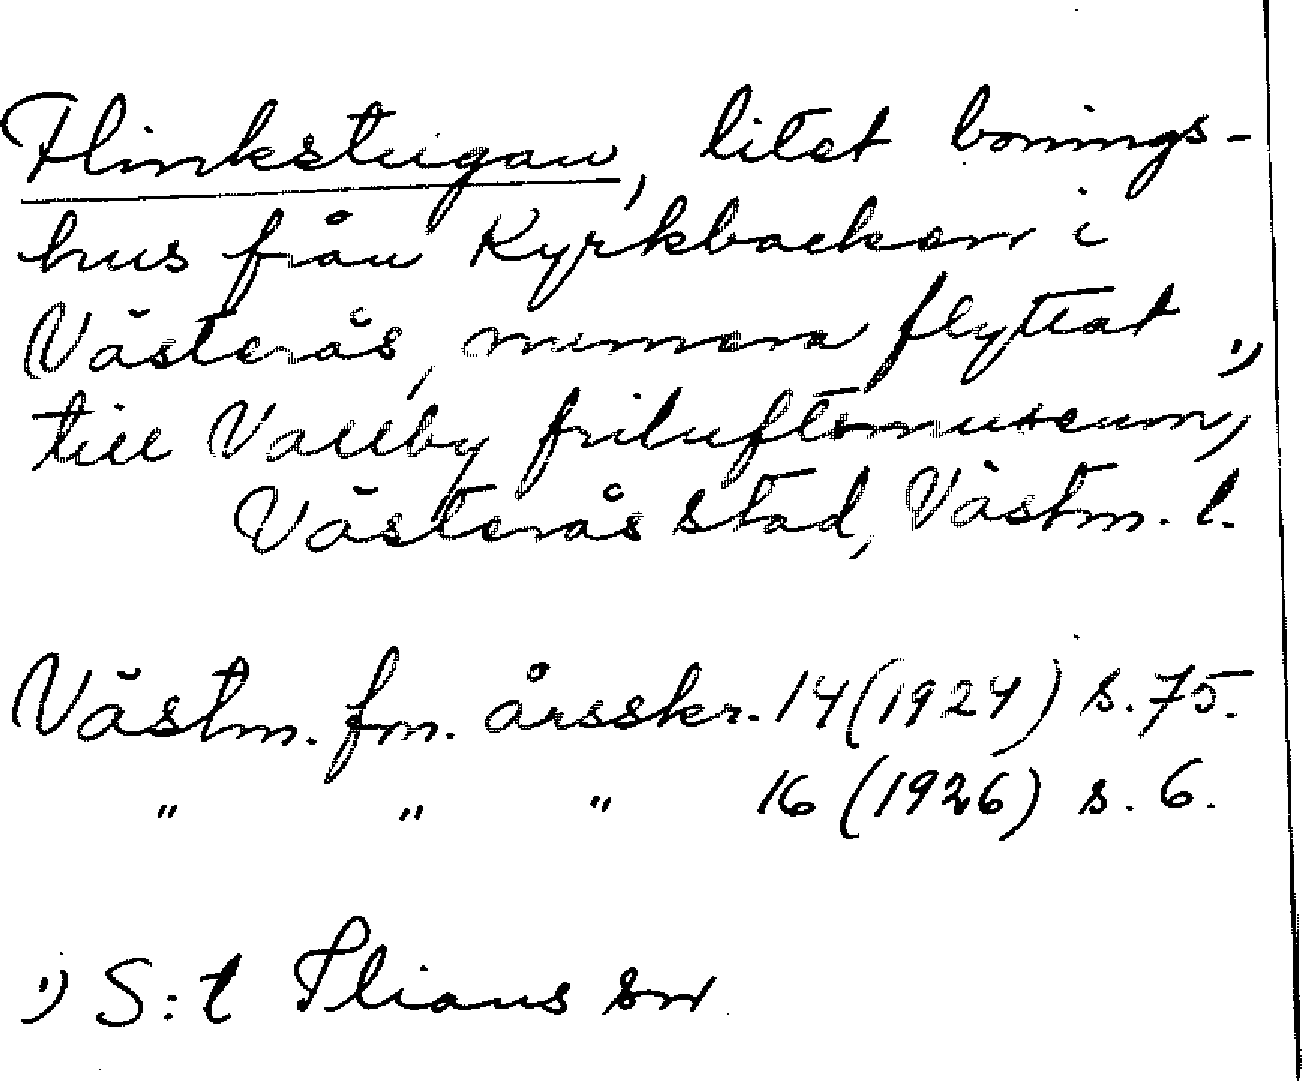 Flinkstugan, litet bonings-
hus från Kyrkbacken i
Västerås, numera flyttat
till Vallby friluftsmuseum, ¹)
Västerås stad, Västm. l.
Västm. fm. årsskr. 14 (1924) s. 75.
" " " 16 (1926) s. 6.
¹) S:t Ilians sn